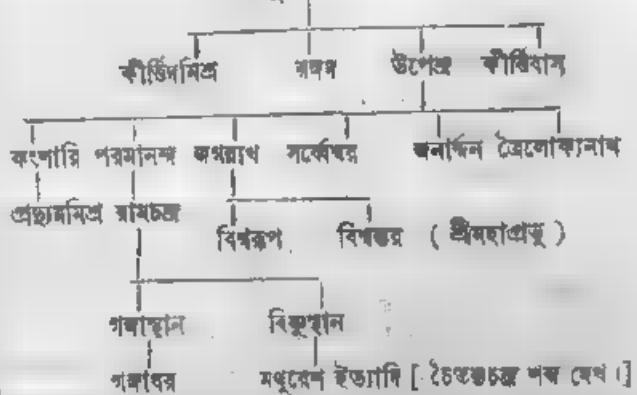 কীর্ত্তিদমিশ্র রঙ্গদ উপেন্দ্র কীর্ত্তিবাস
কংসারি পরমানন্দ জগন্নাথ সর্ব্বেশ্বর জনার্দ্দন ত্রৈলোক্যনাথ
প্রদ্যুম্নমিশ্র রামচন্দ্র
বিশ্বরূপ বিশ্বম্ভর ( শ্রীমহাপ্রভু )
গঙ্গাস্থান বিষ্ণুস্থান
গঙ্গাধর মথুরেশ ইত্যাদি [ চৈতন্যচন্দ্র শব্দ দেখ।]